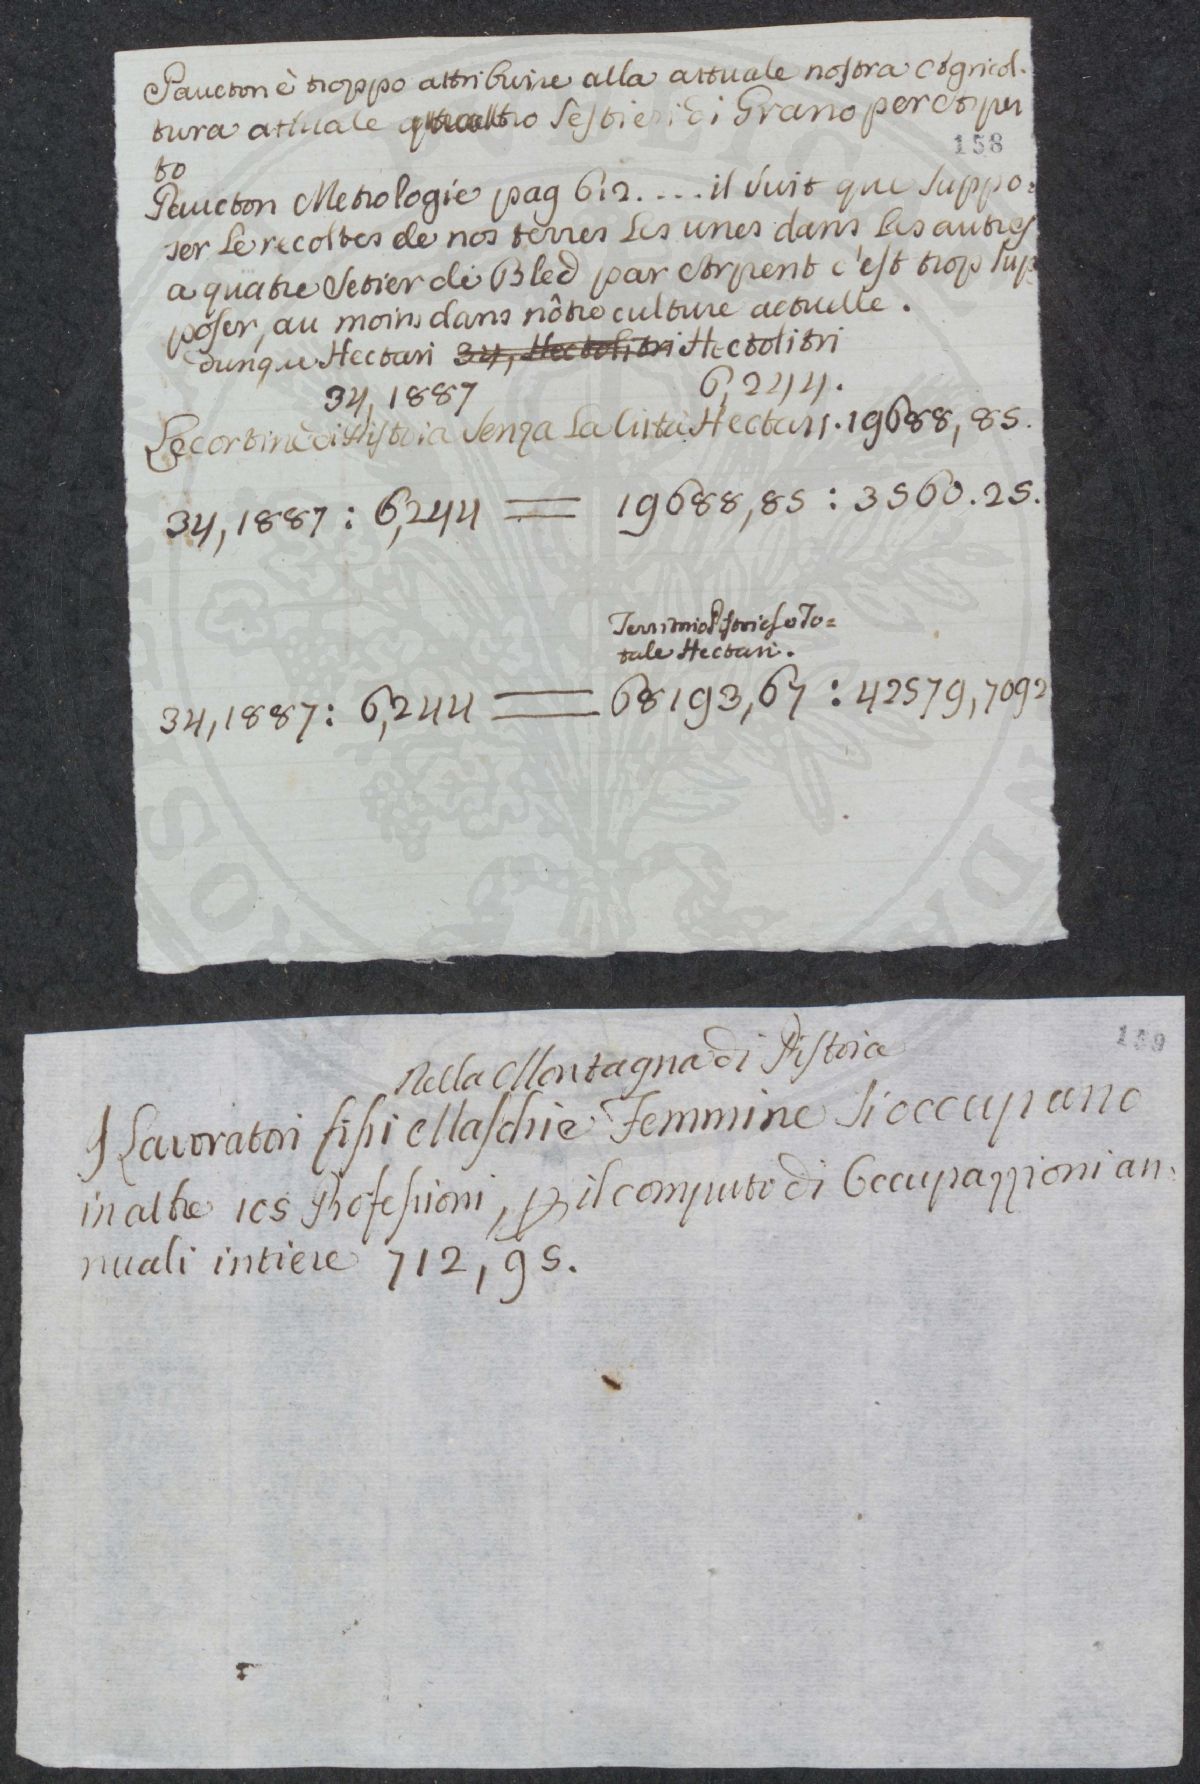 Paucton è troppo attribuire alla attuale nostra Agricol-
tura attuale quattro Sestieri di Grano per Arpen
to
158
Paucton Metrologie pag 612.... il suit que suppo=
ser Le recoltes de nos terres Les unes dans Les autres
a quatre Setier de Bled par Arpent c'est trop sup
poser, au moins dans nôtre culture actuelle.
dunque Hectari 34, Hectolitri Hectolitri
34,1887 6,244.
Le cortine di Pistoia senza La Città Hectari. 19688,85.
34,1887 : 6,244 = 19688,85 : 3560.25.
Territorio Pistoiese To=
tale Hectari.
34,1887 : 6,244 = 68193,67 : 42579,7092
159
Nella Montagna di Pistoia
I Lavoratori fissi Maschi è Femmine si occupano
in altre 105 Professioni, p il computo di Occupazzioni an=
nuali intiere 712,95.